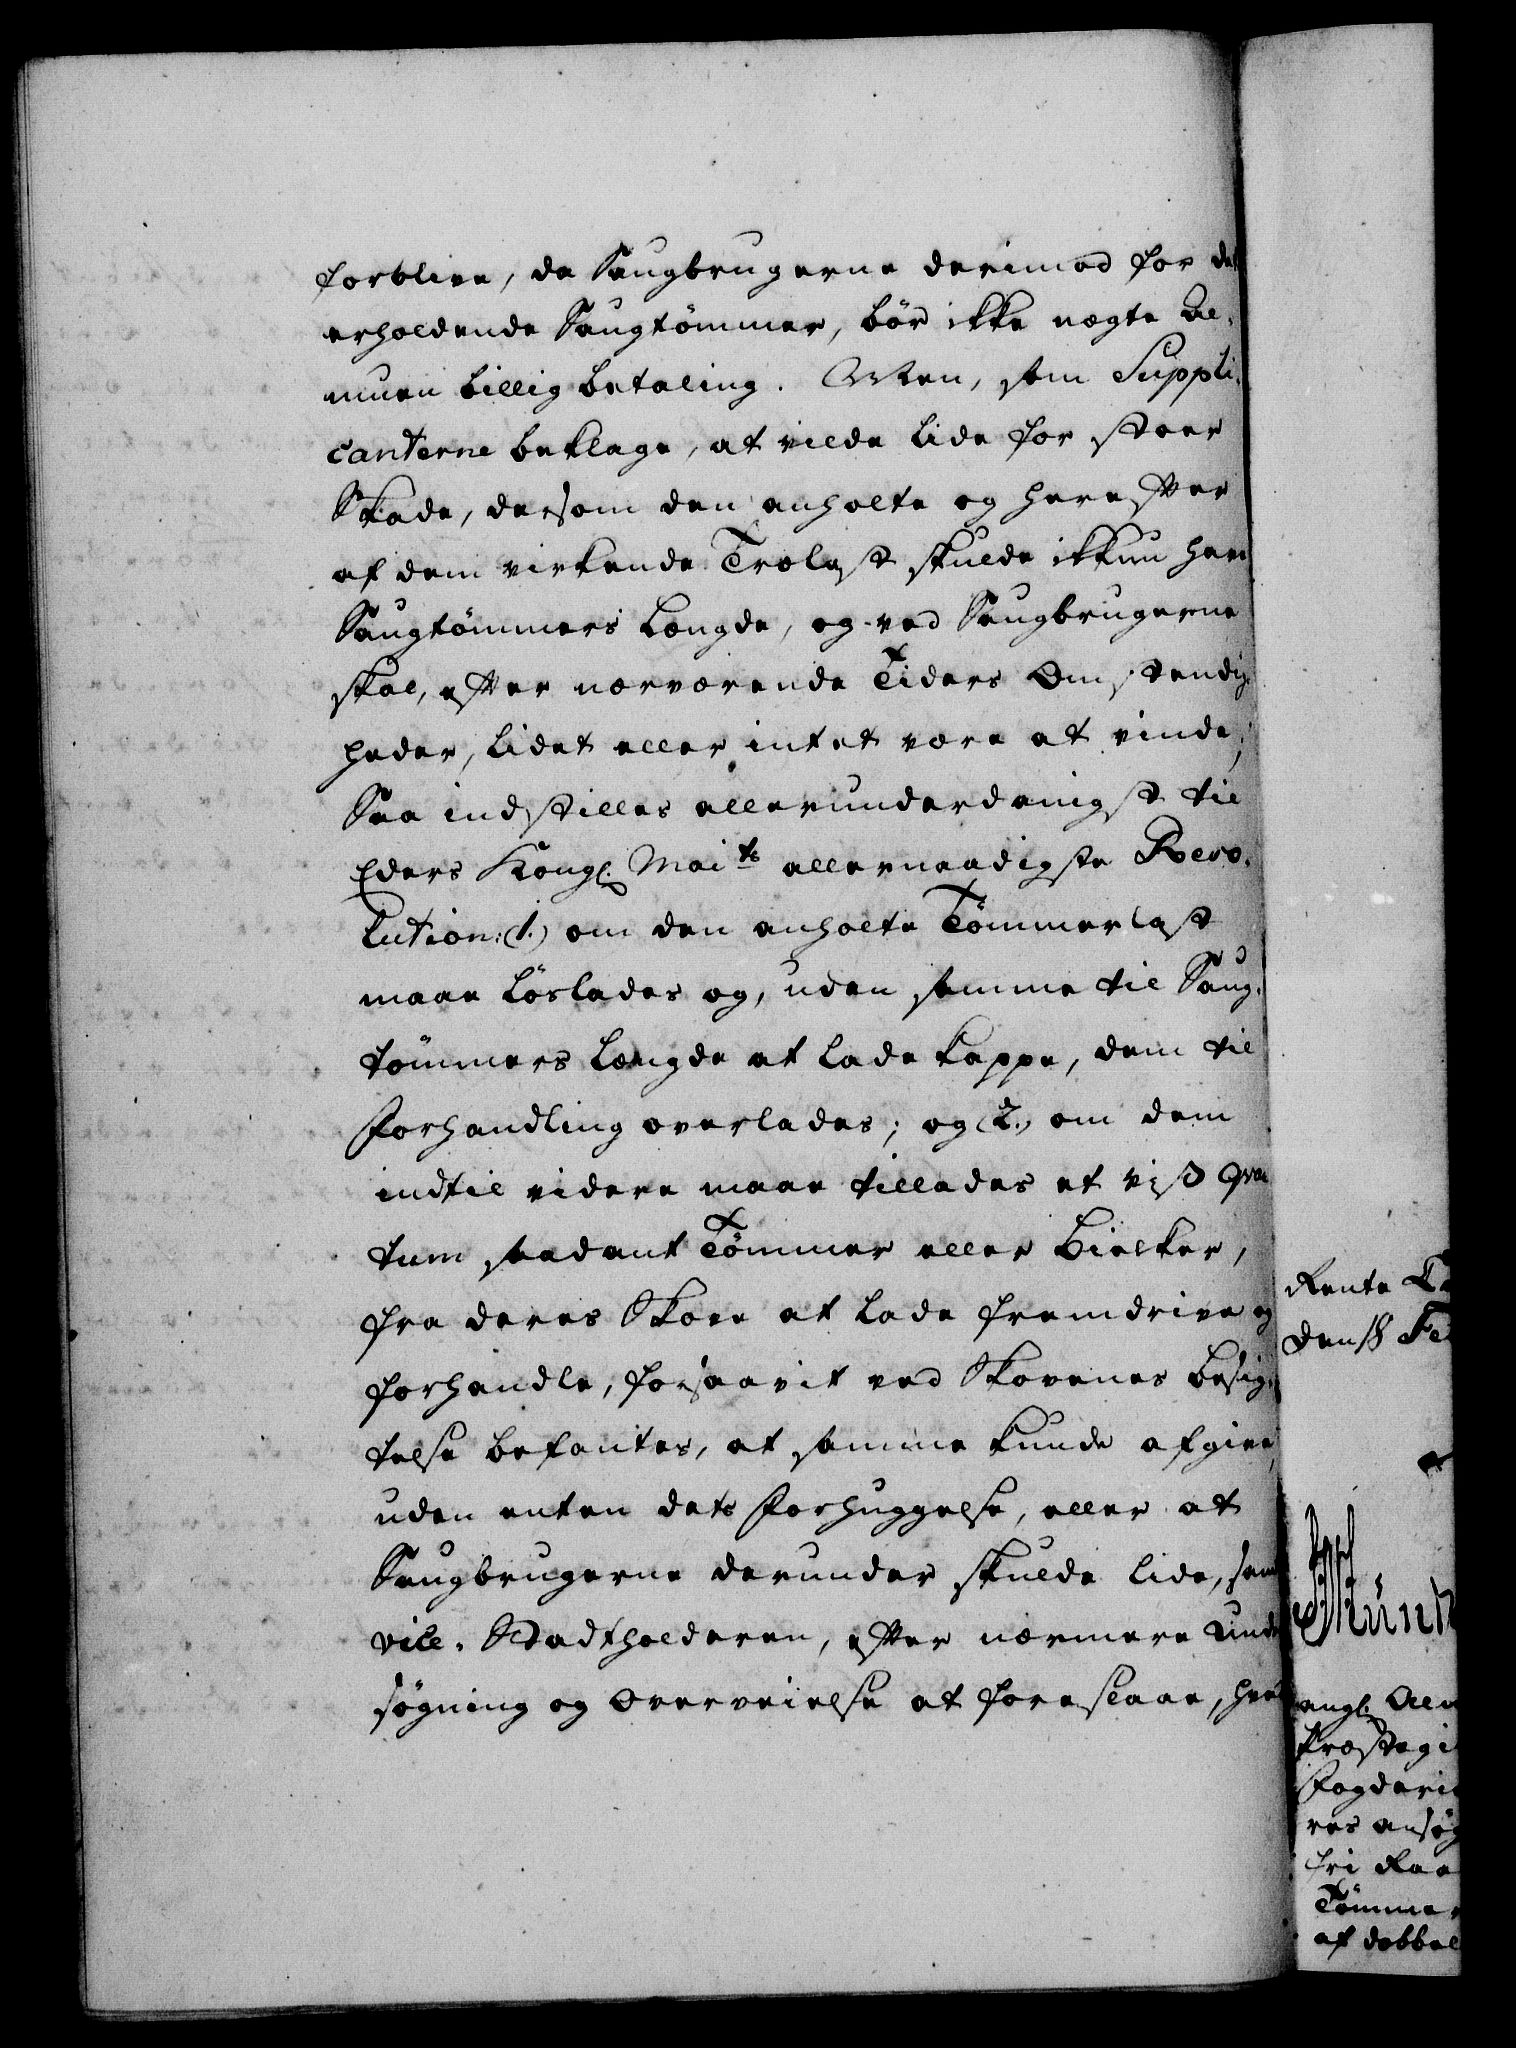 forblive, da Saugbrugerne derimod for det
erholdende Saugtömmer, bör ikke nægte Al-
muen billig betaling. Men, som Suppli-
canterne beklage, at vilde lide for stoer
Skade, dersom den anholte og herefter
af dem virkende Trælast skulde ikkun have
Saugtömmers Længde, og ved Saugbrugerne
skal, efter nærværende Tiders Omstændig-
heder, lidet eller intet være at vinde;
Saa indstilles allerunderdanigst til
Eders Kongl. Maits allernaadigste Reso-
lution: (1.) om den anholte Tömmerlast
maae löslades og, uden samme til Saug-
tömmers Længde at lade kappe, dem til
Forhandling overlades; og (2.) om dem
indtil videre maae tillades et vist Qvan
tum saadant Tömmer eller Bielker,
fra deres Skove at lade fremdrive og
forhandle, forsaavit ved Skovenes Besig-
telse befantes, at samme kunde afgive,
uden enten dets Forhuggelse, eller at
Saugbrugerne derunder skulde lide, samt
vice-Stadtholderen, efter nærmere Unde
søgning og Overveielse at foreslaae, hvad
Rente Ca
den 18 Fe
Münn
angl. Alm
Præstegi
Fogderie
res ansøg
fri Raa
Tömmer
af dobbel